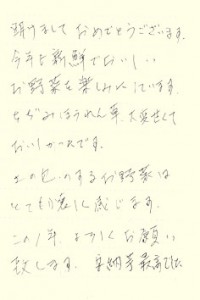 明けまして おめでとうございます。
今年も新鮮でおいしい
お野菜を楽しみにしています。
ちぢみほうれん草、大変甘くて
おいしかったです。
するお野菜は
とても に感じます。
この1年、よろしくお願い
致します。 納 最高でした